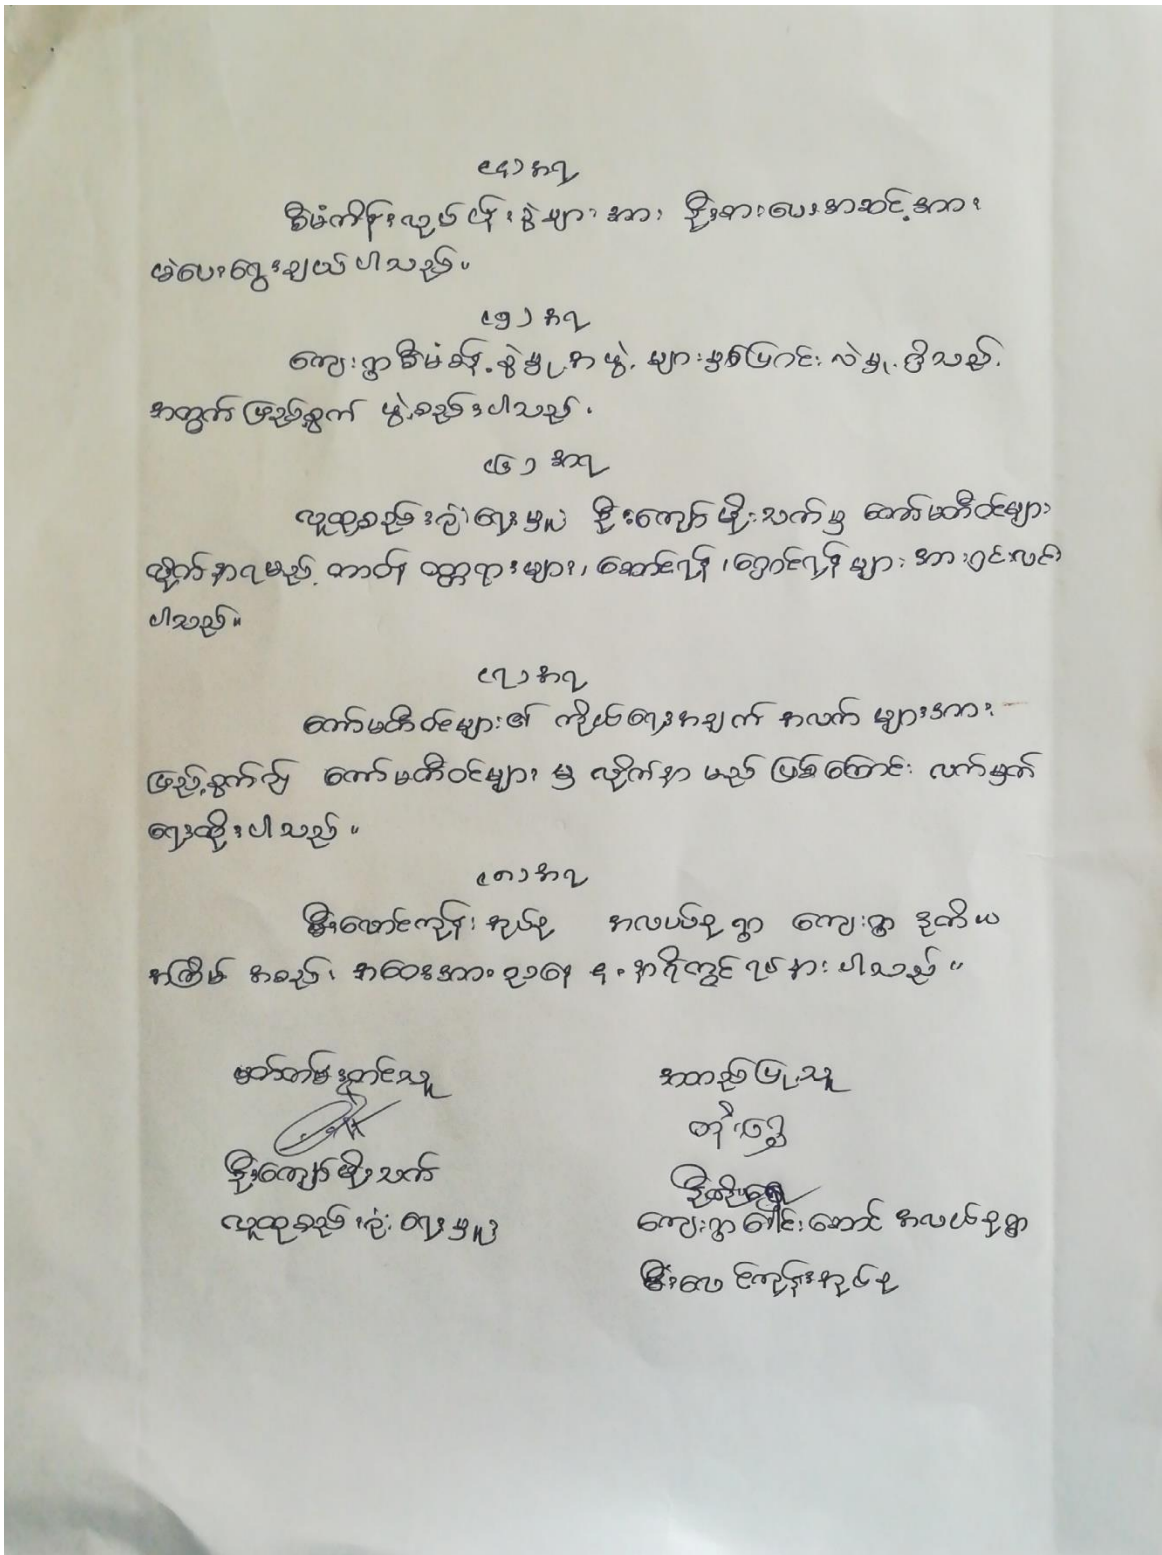 (၄) အရ
စီမံကိန်းလုပ်ငန်းခွဲများအား ဦးစားပေးအဆင့်အား
မဲပေးရွေးချယ်ပါသည်။
(၅) အရ
ကျေးရွာစီမံခန့်ခွဲမှုအဖွဲ့များမှစ၍ပြောင်းလဲမှုရှိသည့်
အတွက် ဖြည့်စွက် ဖွဲ့စည်းပါသည်။
(၆) အရ
လူထုစည်းရုံးရေးမှူး ဦးကျော်မျိုးသက်မှ ကော်မတီဝင်များ
လိုက်နာရမည့် တာဝန် ဝတ္တရားများ၊ ဆောင်ရန်၊ ရှောင်ရန်များအား ရှင်းလင်း
ပါသည်။
(၇) အရ
ကော်မတီဝင်များ၏ ကိုယ်ရေးအချက်အလက်များအား
ဖြည့်စွက်၍ ကော်မတီဝင်များမှ လိုက်နာမည် ဖြစ်ကြောင်း လက်မှတ်
ရေးထိုးပါသည်။
(၈) အရ
အုပ်စု အလယ်စုရွာ ကျေးရွာ ဒုတိယ
အကြိမ် အစည်းအဝေးအား ၃၁၈နေ့ နာရီတွင် ရပ်နားပါသည်။
မှတ်တမ်းတင်သူ
အတည်ပြုသူ
ဦးကျော်မျိုးသက်
လူထုစည်းရုံးရေးမှူး
ကျေးရွာခေါင်းဆောင် အလယ်စုရွာ
အုပ်စု